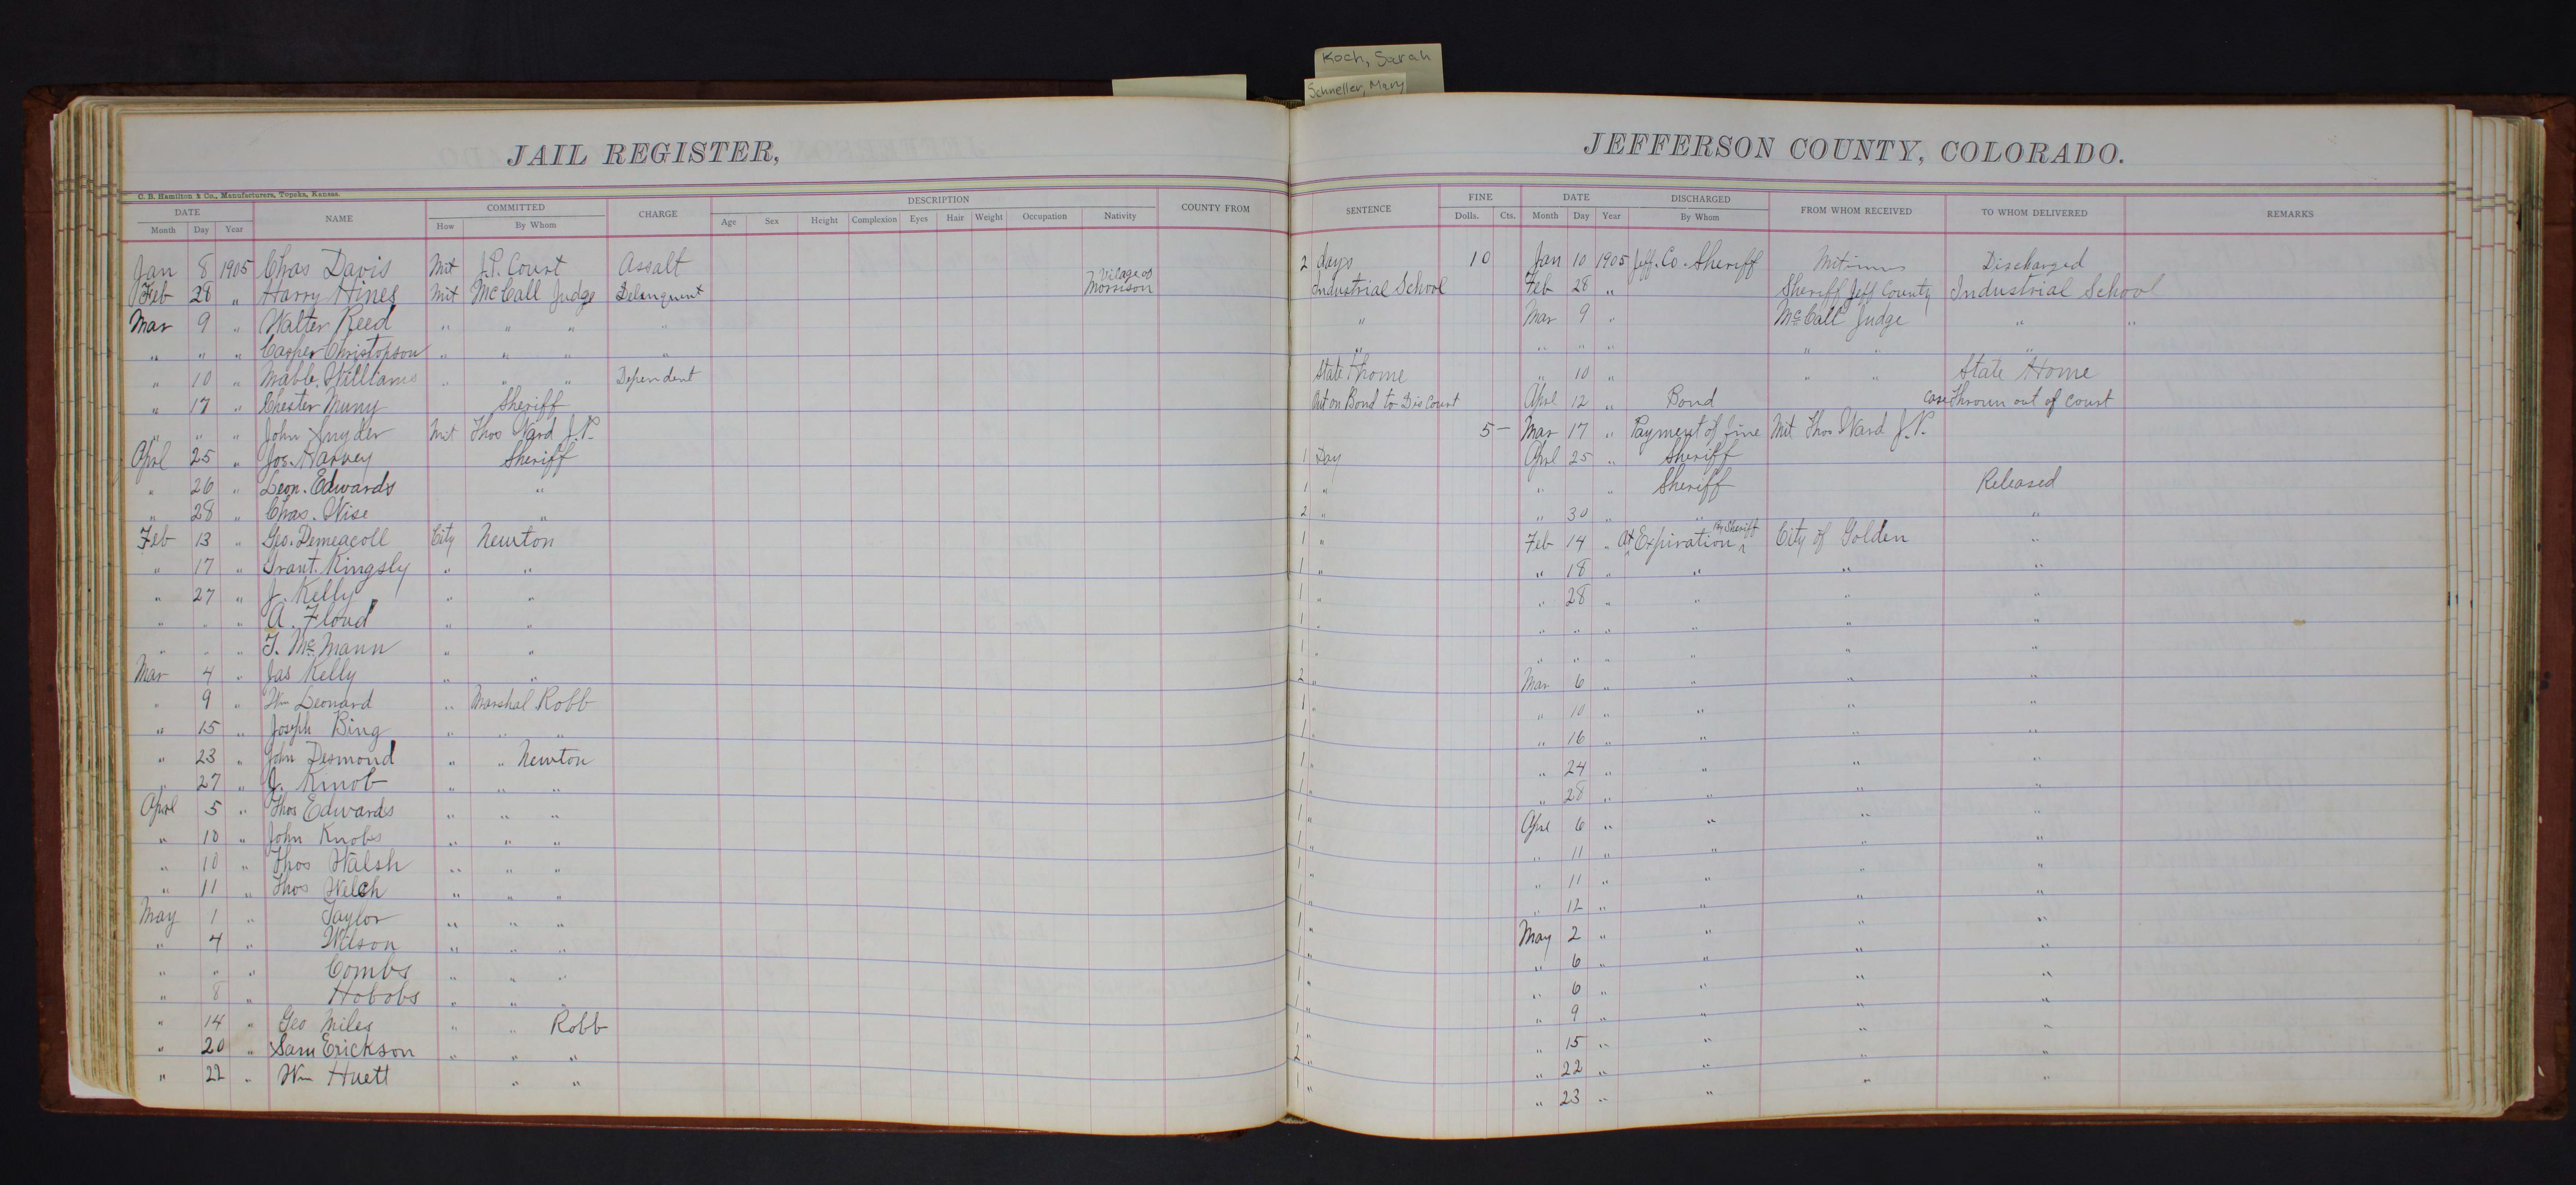 Koch, Sarah
Schneller, Mary
JAIL REGISTER, JEFFERSON COUNTY, COLORADO.
C. B. Hamilton & Co., Manufacturers, Topeka, Kansas.
DATE NAME COMMITTED CHARGE DESCRIPTION COUNTY FROM SENTENCE FINE DATE DISCHARGED FROM WHOM RECEIVED TO WHOM DELIVERED REMARKS
Month Day Year How By Whom Age Sex Height Complexion Eyes Hair Weight Occupation Nativity Dolls. Cts. Month Day Year By Whom
Jan 8 1905 Chas Davis Mit J.P. Court Assalt 2 days 10 Jan 10 1905 Jeff. Co. Sheriff Mitimus Discharged
Feb 28 " Harry Hines Mit McCall Judge Delenquent Vilage of Morrison Industrial School Feb 28 " Sheriff Jeff County Industrial School
Mar 9 " Walter Reed " " " " " Mar 9 " McCall Judge " "
" " " Casper Christopson " " " " " " " " " " "
" 10 " Mable Williams " " " Dependent State Home " 10 " " " State Home
" 17 " Chester Muny Sheriff Out on Bond to Dis Court Aprl 12 " Bond Case Thrown out of court
" " " John Snyder Mit Thos Ward J.P. 5 — Mar 17 " Payment of fine Mit Thos Ward J.P.
Aprl 25 " Jos. Harvey Sheriff 1 Day Aprl 25 " Sheriff
" 26 " Leon. Edwards " 1 " " " Sheriff Released
" 28 " Chas. Wise " 2 " " 30 " " "
Feb 13 " Geo. Demeacoll City Newton 1 " Feb 14 " At Expiration By Sheriff City of Golden "
" 17 " Grant. Kingsly " " 1 " " 18 " " " "
" 27 " J. Kelly " " 1 " " 28 " " " "
" " " A. Floud " " 1 " " " " " " "
" " " T. McMann " " 1 " " " " " " "
Mar 4 " Jas Kelly " " 2 " Mar 6 " " " "
" 9 " Wm Leonard " Marshal Robb 1 " " 10 " " " "
" 15 " Joseph Bing " " " 1 " " 16 " " " "
" 23 " John Desmond " " Newton 1 " " 24 " " " "
" 27 " J. Kinob " " " 1 " " 28 " " " "
Aprl 5 " Thos Edwards " " " 1 " Aprl 6 " " " "
" 10 " John Knobs " " " 1 " " 11 " " " "
" 10 " Thos Walsh " " " 1 " " 11 " " " "
" 11 " Thos Welch " " " 1 " " 12 " " " "
May 1 " Taylor " " " 1 " May 2 " " " "
" 4 " Wilson " " " 1 " " 6 " " " "
" " " Combs " " " 1 " " 6 " " " "
" 8 " Hobobs " " " 1 " " 9 " " " "
" 14 " Geo Miles " " Robb 1 " " 15 " " " "
" 20 " Sam Erickson " " " 2 " " 22 " " " "
" 22 " Wm Huett " " 1 " " 23 " " " "